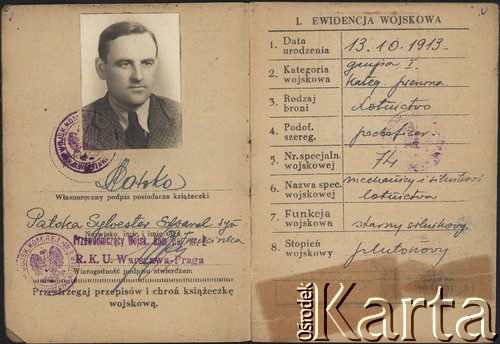 Patoka
Własnoręczny podpis posiadacza książeczki
Patoka Sylwester Edward syn
Nazwisko imię i imię ojca
Przewodniczący Wojsk. Kom. Rej.
R. K. U. Warszawa-Praga
Wiarogodność podpisu stwierdzam
Przestrzegaj przepisów i chroń książeczkę
wojskową.
I. EWIDENCJA WOJSKOWA
1. Data urodzenia 13.10.1913
2. Kategoria wojskowa grupa I.
Kateg. pierwsza
3. Rodzaj broni Lotnictwo
4. Podof. szereg. podoficer
5. Nr. specjaln. wojskowej 74
6. Nazwa spec. wojskowej mechanicy i silnikowi
lotnictwa
7. Funkcja wojskowa starszy silnikowy
8. Stopień wojskowy plutonowy
Ośrodek
Karta